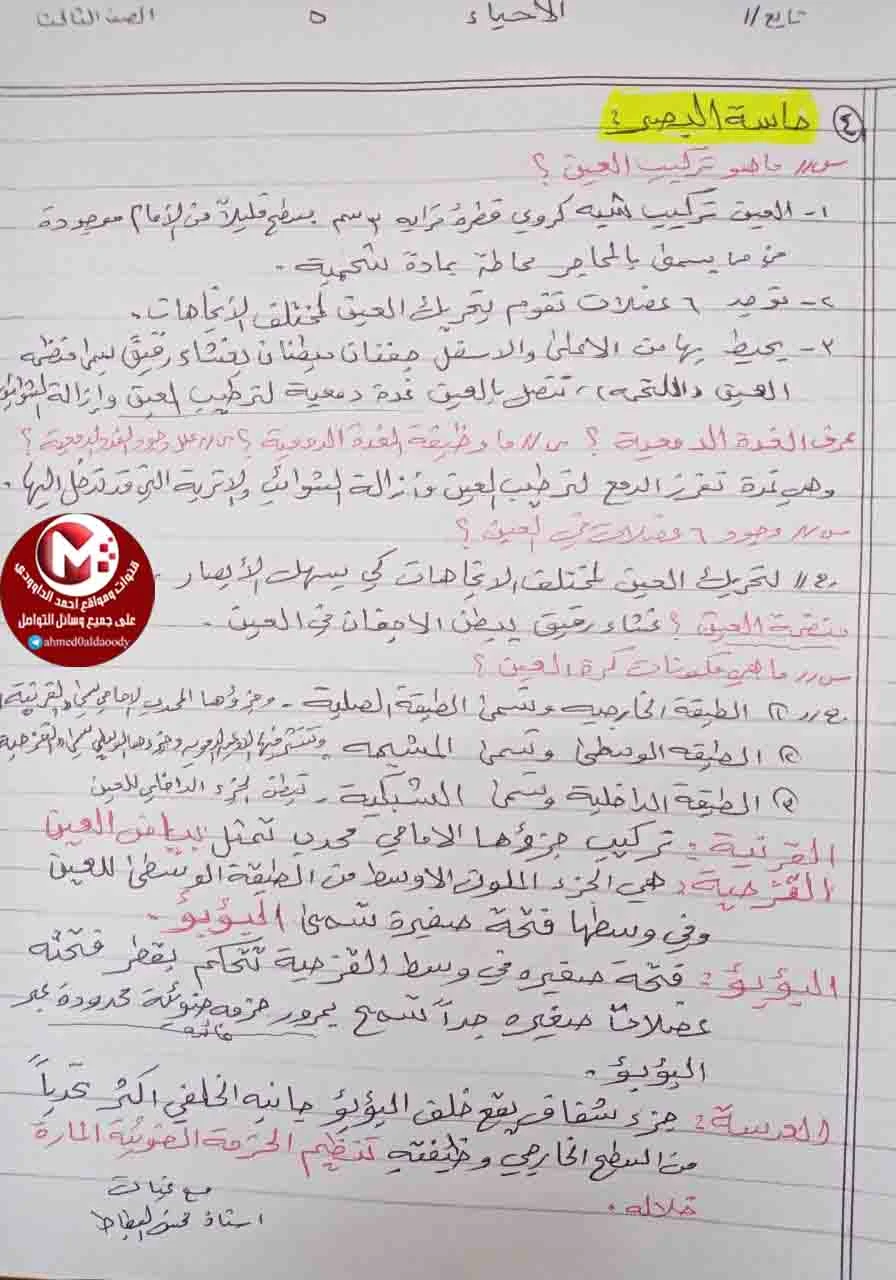 تاريخ // الأحياء ٥ الصف الثالث
٤ حاسة البصر :
س// ما هو تركيب العين ؟
١- العين تركيب شبه كروي قطرة قرابه ٣ سم بسطح قليلاً من الأمام موجودة
من ما يسمى بالمحاجر محاطة بمادة شحمية .
٢- توجد ٦ عضلات تقوم بتحريك العين لمختلف الأتجاهات .
٣- يحيط بها من الاعلى والاسفل جفنان مبطنان بغشاء رقيق يسما منظمه
العين (الملتحمه) ، تتصل بالعين غدة دمعية لترطيب العين وإزالة الشوائب
عرف الغدة الدمعية ؟ س// ما وظيفة الغدة الدمعية ؟ س// علل وجود الغدد الدمعية ؟
وهي غدة تفرز الدمع لترطيب العين وأزالة الشوائب والاتربة التي قد تدخل اليها .
س// وجود ٦ عضلات في العين ؟
ج// لتحريك العين لمختلف الاتجاهات كي يسهل الأبصار .
العين ؟ غشاء رقيق يبطن الاجفان في العين .
س// ما هي مكونات كرة العين ؟
ج// ١) الطبقة الخارجيه وتسمى الطبقة الصلبة - وجزؤها المحدب الامامي يسمى القرنية
٢) الطبقه الوسطى وتسمى المشيمه وتنتشر فيها الاوعية الدموية وجزءها الوسطي يسمى القزحية
٣) الطبقة الداخلية وتسمى الشبكية - تبطن الجزء الداخلي للعين
القرنية : تركيب جزؤها الامامي محدب تمثل بياض العين
القزحية : هي الجزء الملون الاوسط من الطبقة الوسطى للعين
وفي وسطها فتحة صغيرة تسمى البؤبؤ .
البؤبؤ : فتحة صغيره في وسط القزحية تتحكم بقطر فتحته
عضلات صغيره جداً تسمح بمرور حزمه ضوئية محدودة عبر
البؤبؤ .
العدسة : جزء شفاف يقع خلف البؤبؤ جانبه الخلفي اكثر تحدباً
من السطح الخارجي وظيفته تنظيم الحزمة الضوئية المارة
خلاله .
مع تحيات
استاذ
M
قنوات ومواقع احمد الداوودي
على جميع وسائل التواصل
ahmed0aldaoody